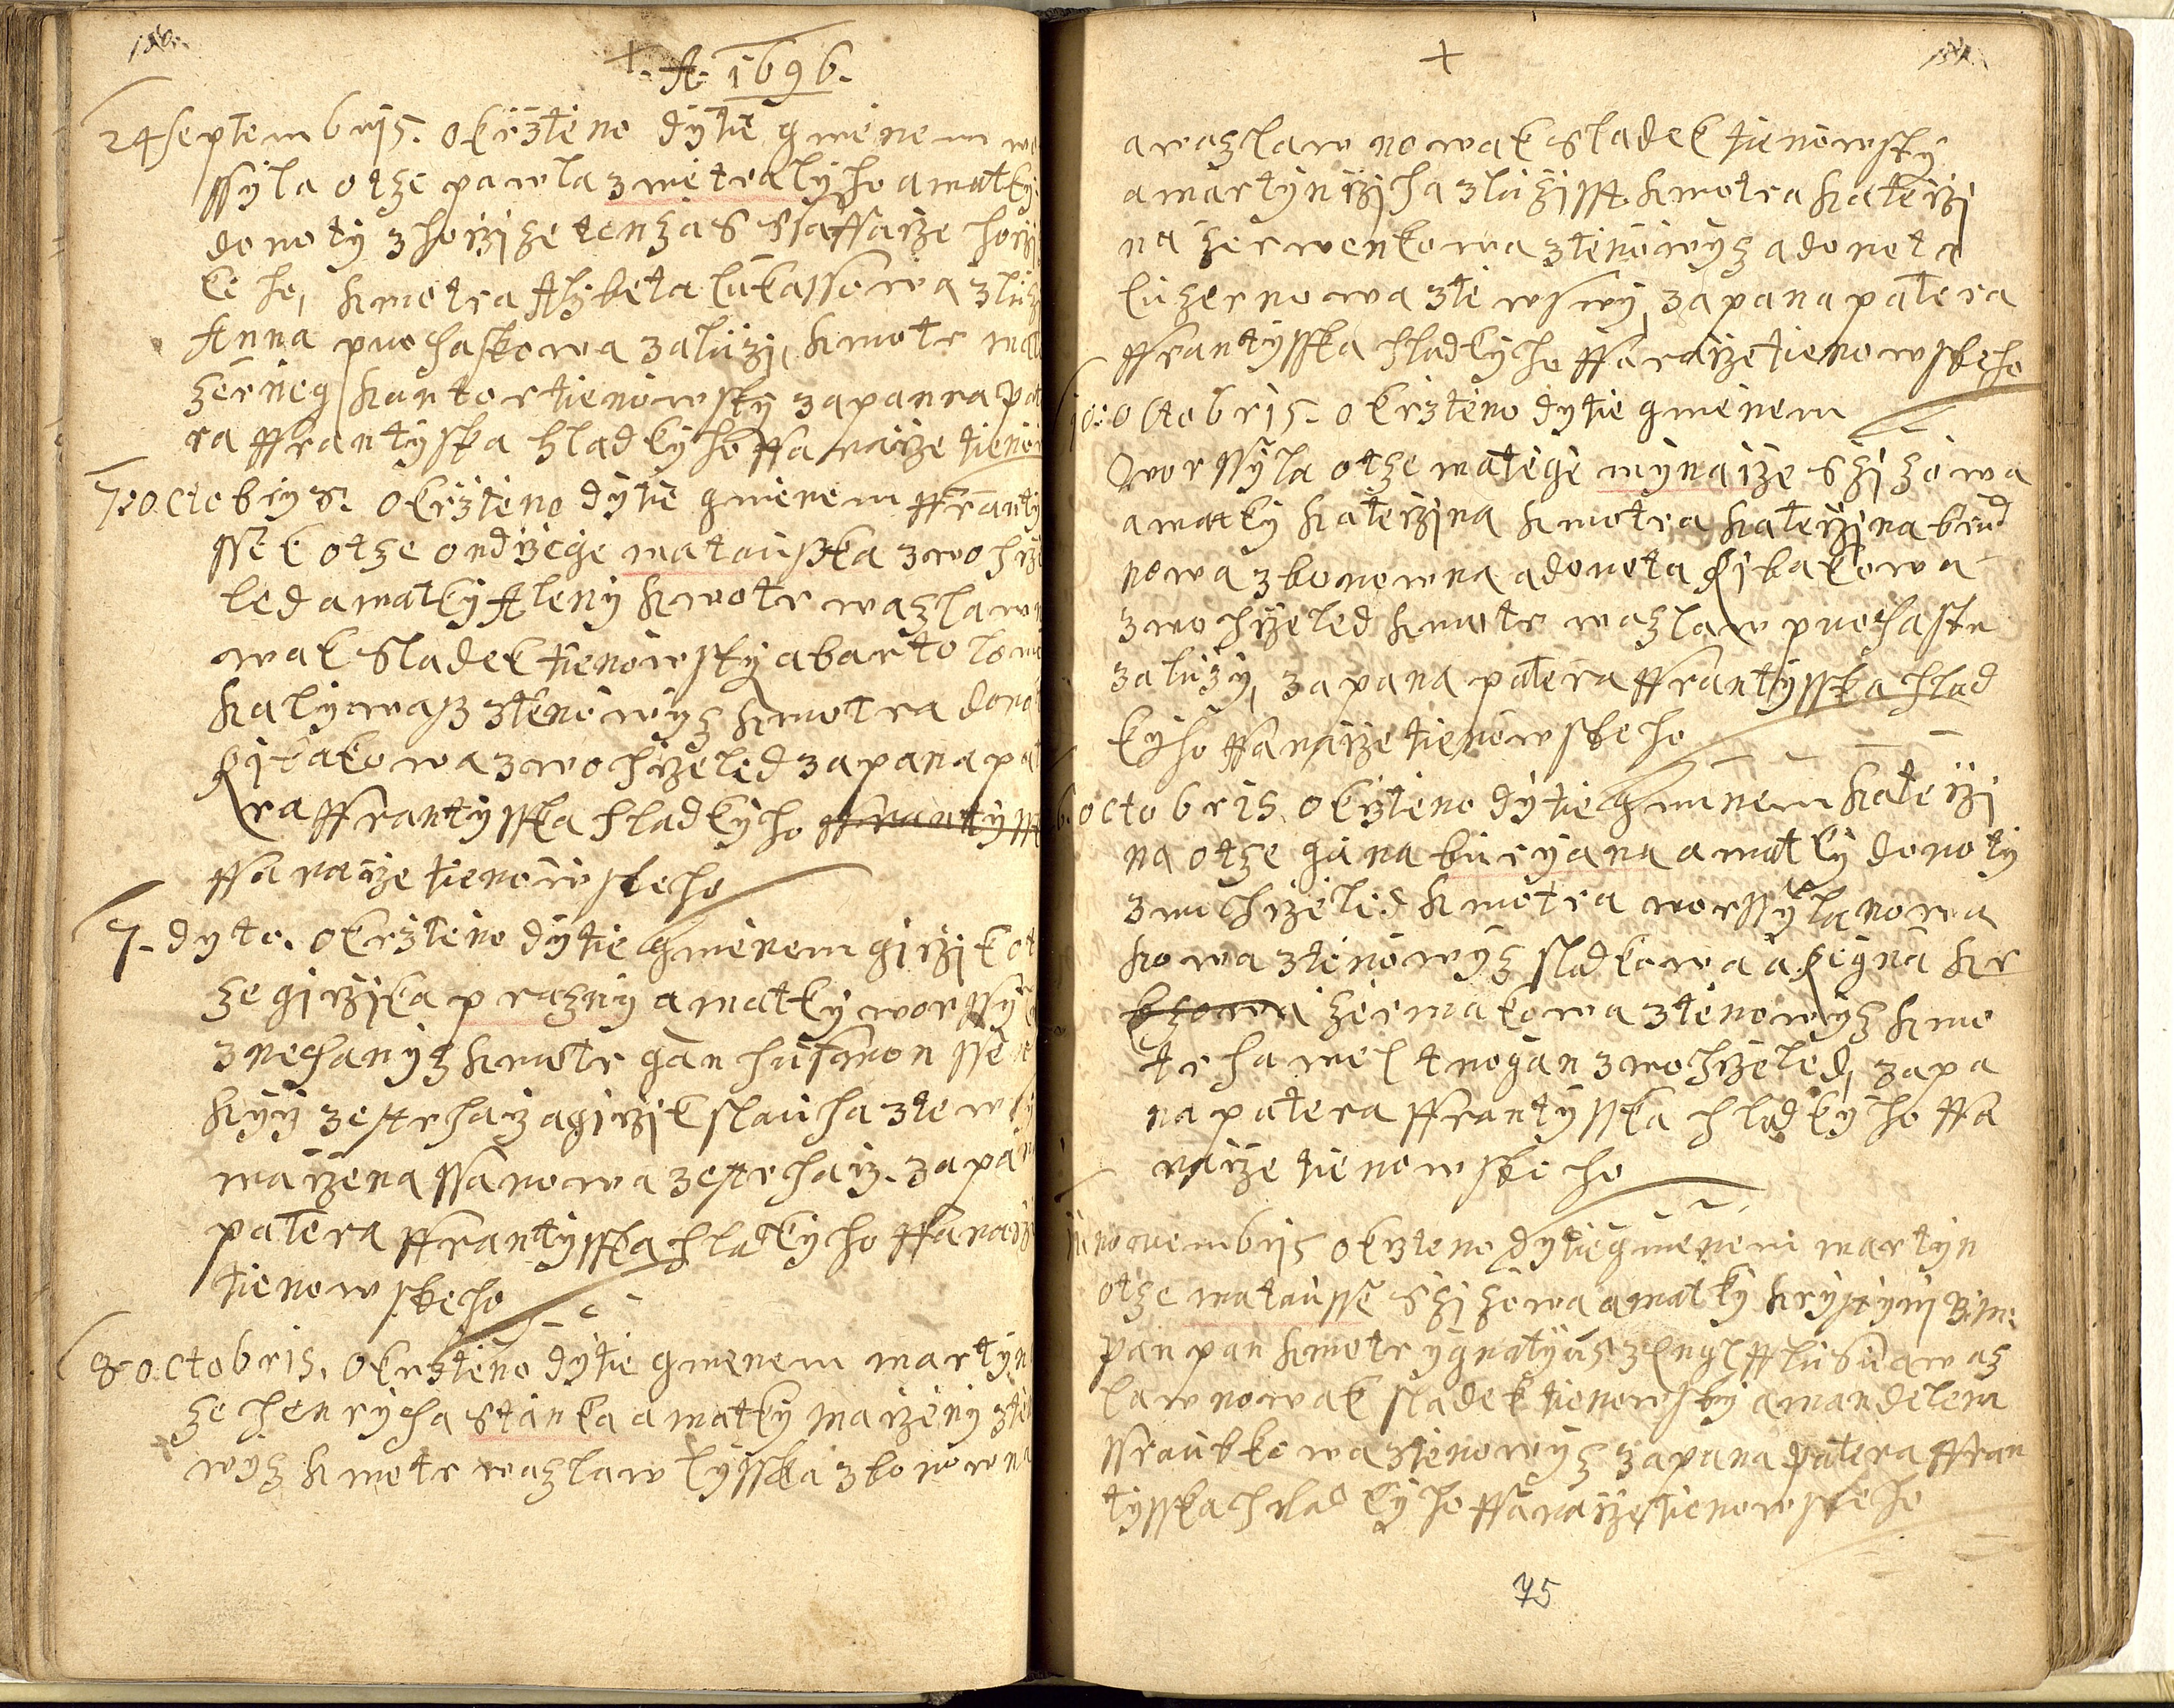 +. A. 1696.
24 septembrys. okrzteno dytie gmenem wo
ssyla otze pawla zmetralyho a matky
doroty z horzize tenzas ssaffarze horzi
keho, kmotra Alzbeta lukassowa z luz
Anna prochaskowa z aluzi, kmotr
zerneg kantor tienowsky za pana pat
ra ffrantyska hladkyho ffararze tieno
7: octobrys. okrzteno dytie gmenem ffranty
ssek otze ondrzege matausska z wohrze
led a matky Aleny kmotr wazlaw
wak sladek tienowsky a bartolom
kalywass z tenowyz kmotra doro
ribakowa z wohrzeled za pana pat
ra ffrantysska hladkyho ffrantyss
ffararze tienowskeho
7. dyto. okrzteno dytie gmenem girzik ot
ze girzika prazny a matky worssy
z nehanyz kmotr gan
kyy ze strharz a girzik slauha z tew
marzena ssanowa ze strharz. za pa
patera ffrantysska hladkyho ffararz
tienowskeho
8. octobris. okrzteno dytie gmenem martyn
ze henrycha stanka a matky marzeny z te
wyz kmotr wazlaw lysska z borowna
+
a wazlaw nowak sladek tienowsky
a martyn rziha z luzisst kmotra katerzi
na zerwenkowa z tenowyz a doreta
luzernowa z tewswy, za pana patera
ffrantysska hladkyho ffararze tienowskeho
10: octobris. okrzteno dytie gmenem
worssyla otze matege mynarze s zizowa
a matky katerzina kmotra katerzina brud
nowa z borowna a doreta ribakowa
z wohrzeled kmotr wazlaw prochaska
z aluzy, za pana patera ffrantysska hlad
kyho ffararze tienowskeho
octobris okrzteno dytie gmenem katerzi
na otze gana buryana a matky doroty
z wohrzeled kmotra worssyla nowa
kowa z tenowyz sladkowa a regna kr
zermakowa z tenowyz kmo
tr hawel trnogan z wohrzeled, za pa
na patera ffrantysska hladkyho ffa
rarze tienowskeho
novembrys okrzteno dytie gmenem martyn
otze matausse s zizowa a matky krystyny
pan pan kmotr ygnatyus a waz
law nowak sladek tienowsky a mandelena
ssraubkowa z tenowyz za pana patera ffran
tysska hladkyho ffararze tienowskeho
75